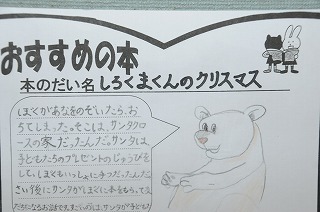 おすすめの本
本のだい名 しろくまくんのクリスマス
ぼくがあなをのぞいたら、お
ちてしまった。そこは、サンタクロ
ースの家だったんだ。サンタは、
子どもたちのプレゼントのじゅんびを
して、ぼくもいっしょに手つだったんだ
さい後にサンタがぼくに本をもらって